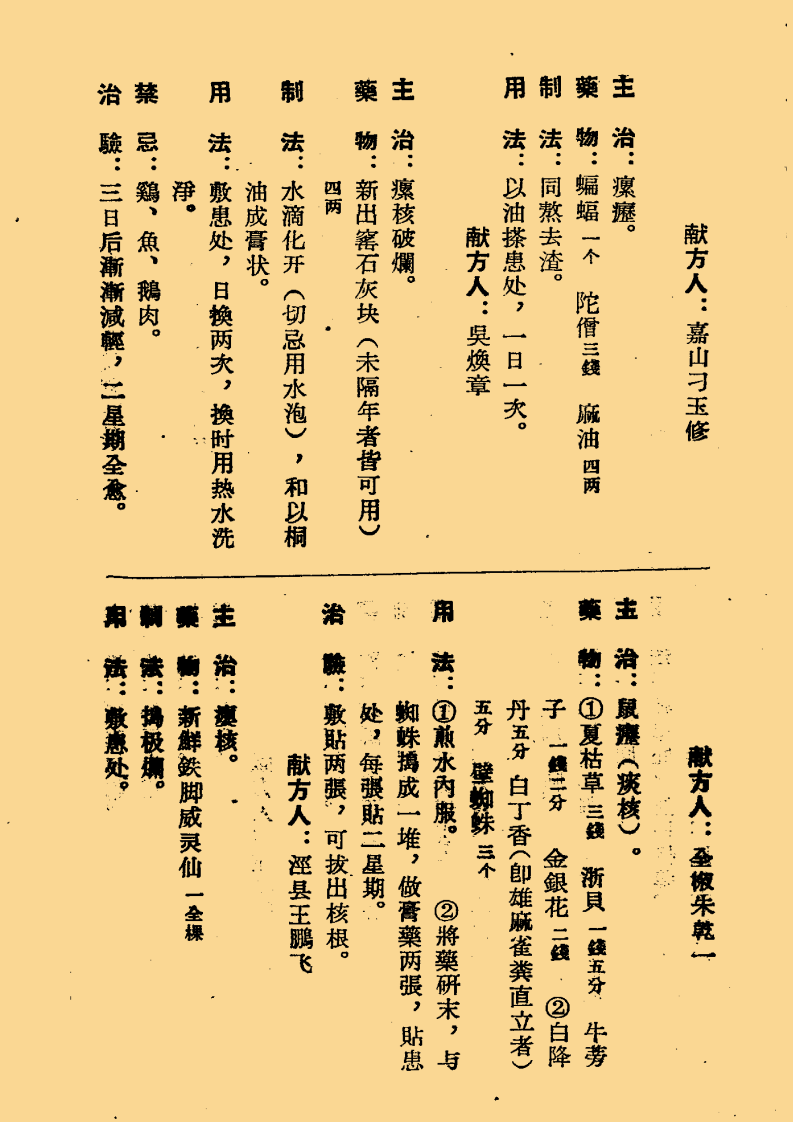 献方人：嘉山刁玉修
主　治：瘰癧。
藥　物：蝙蝠一个　陀僧三錢　麻油四两
制　法：同熬去渣。
用　法：以油搽患处，一日一次。
献方人：吳煥章
主　治：瘰核破爛。
藥　物：新出窰石灰块（未隔年者皆可用）
四两
制　法：水滴化开（切忌用水泡），和以桐
油成膏状。
用　法：敷患处，日換两次，換时用热水洗
淨。
禁　忌：鷄、魚、鵝肉。
治　驗：三日后漸漸減輕，二星期全愈。
献方人：全椒朱乾一
主　治：鼠癧（痰核）。
藥　物：①夏枯草三錢　浙貝一錢五分　牛蒡
子一錢二分　金銀花二錢　②白降
丹五分　白丁香（卽雄麻雀粪直立者）
五分　壁蜘蛛三个
用　法：①煎水內服。　②將藥研末，与
蜘蛛搗成一堆，做膏藥两張，貼患
处，每張貼二星期。
治　驗：敷貼两張，可拔出核根。
献方人：涇县王鵬飞
主　治：瘰核。
藥　物：新鮮鉄脚威灵仙一全棵
制　法：搗极爛。
用　法：敷患处。